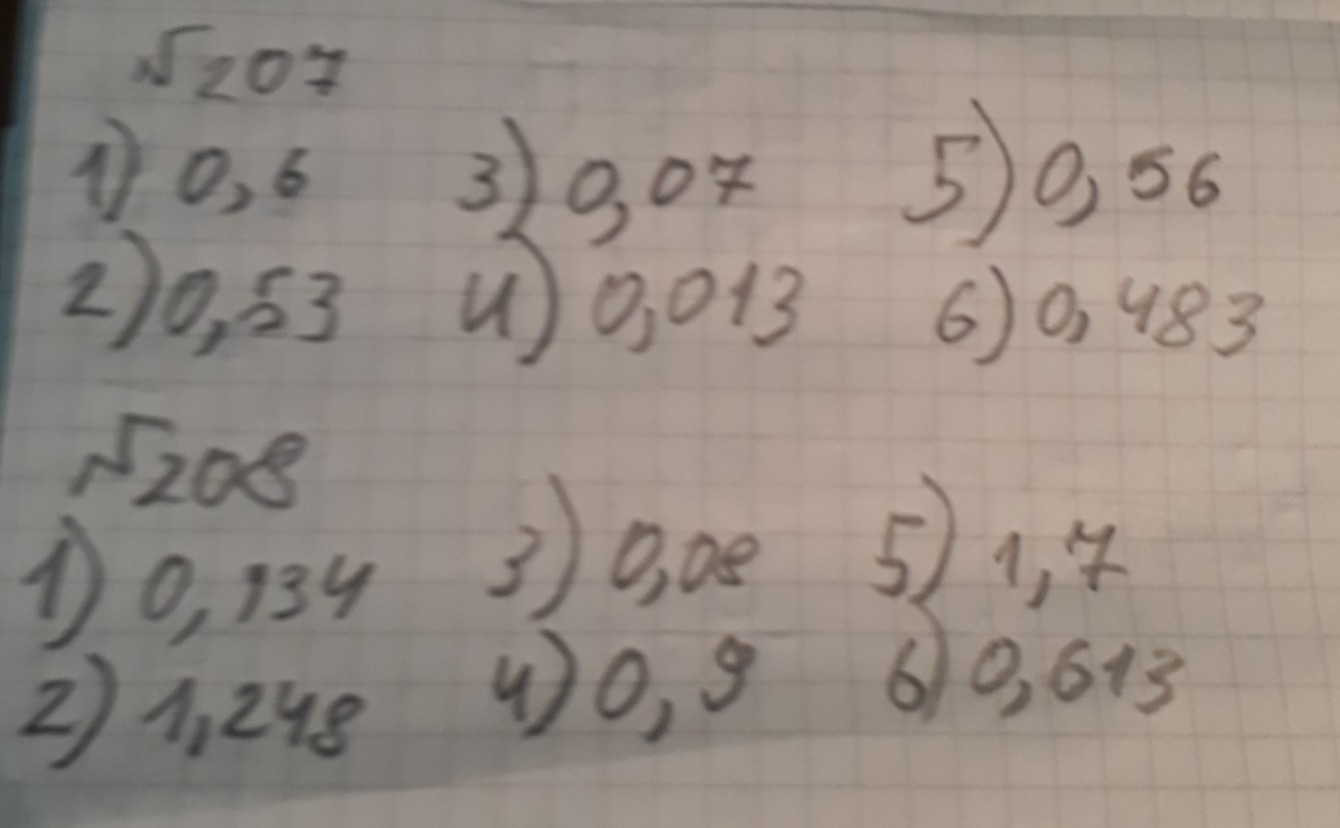 №207
1) 0,6 3) 0,07 5) 0,56
2) 0,53 4) 0,013 6) 0,483
№208
1) 0,134 3) 0,08 5) 1,7
2) 1,248 4) 0,9 6) 0,613